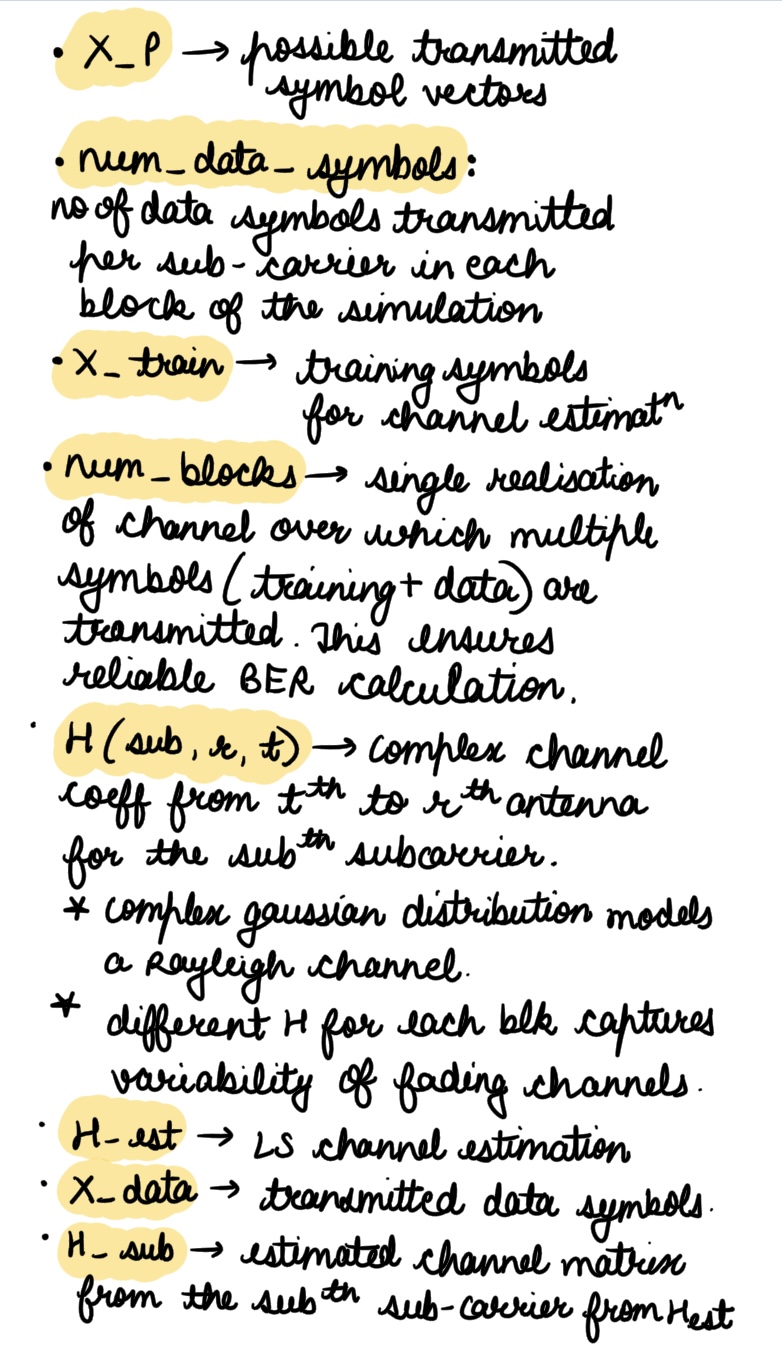 • X_P → possible transmitted
symbol vectors
• num_data_symbols:
no of data symbols transmitted
per sub-carrier in each
block of the simulation
• X_train → training symbols
for channel estimatⁿ
• num_blocks → single realisation
of channel over which multiple
symbols (training + data) are
transmitted. This ensures
reliable BER calculation.
• H(sub, r, t) → complex channel
coeff from tᵗʰ to rᵗʰ antenna
for the subᵗʰ subcarrier.
* complex gaussian distribution models
a Rayleigh channel.
* different H for each blk captures
variability of fading channels.
• H_est → LS channel estimation
• X_data → transmitted data symbols.
• H_sub → estimated channel matrix
from the subᵗʰ sub-carrier from Hest